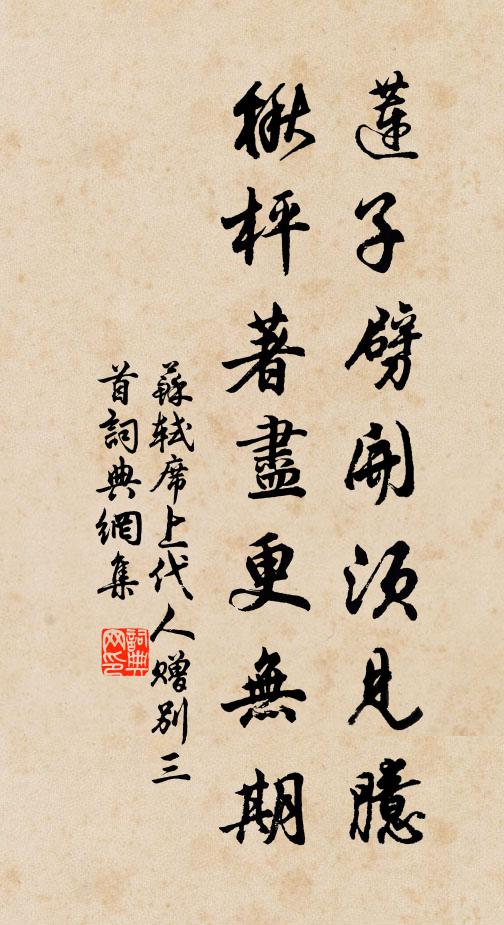 蓮子劈開須見臆
楸枰著盡更無期
蘇軾席上代人贈別三
首詞典網集
詞典网印